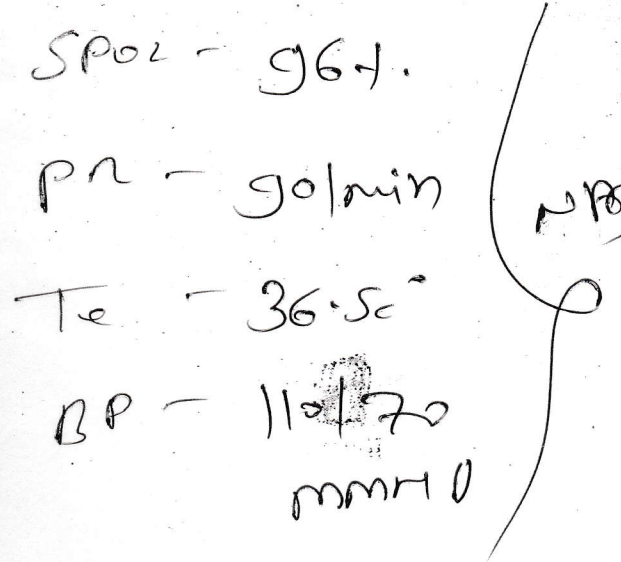 SPO2 - 96%.
PR - 90/min
Te - 36.5c°
BP - 110/70
mmHg